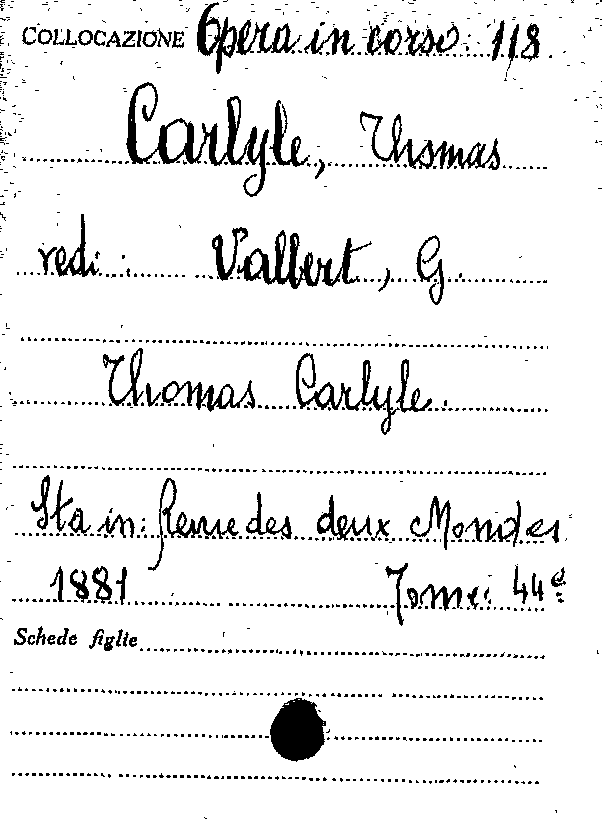 COLLOCAZIONE Opera in corso: 118
Carlyle, Thomas
vedi: Valbert, G.
Thomas Carlyle.
Sta in: Revue des deux Mondes
1881 Tome: 44e
Schede figlie